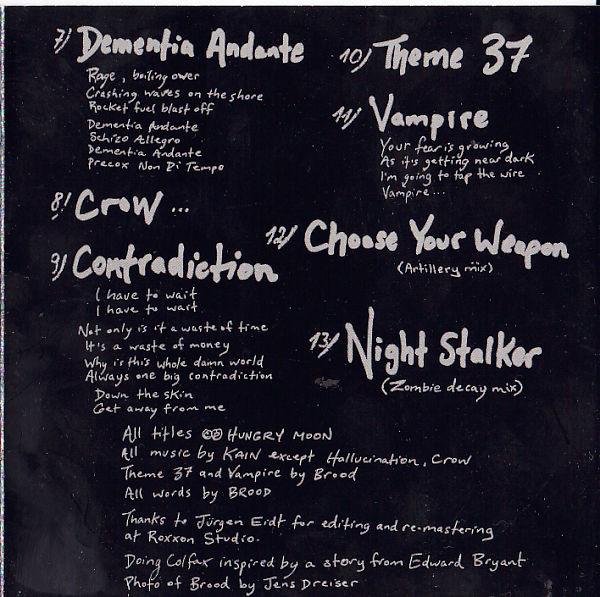 7/ Dementia Andante
Rage, boiling over
Crashing waves on the shore
Rocket fuel blast off
Dementia Andante
Schizo Allegro
Dementia Andante
Precox Non Di Tempo
8/ Crow ...
9/ Contradiction
I have to wait
I have to wait
Not only is it a waste of time
It's a waste of money
Why is this whole damn world
Always one big contradiction
Down the skin
Get away from me
10/ Theme 37
11/ Vampire
Your fear is growing
As it's getting near dark
I'm going to tap the wire
Vampire...
12/ Choose Your Weapon
(Artillery mix)
13/ Night Stalker
(Zombie decay mix)
All titles ©℗ HUNGRY MOON
All music by KAIN except Hallucination, Crow
Theme 37 and Vampire by Brood
All words by BROOD
Thanks to Jürgen Erdt for editing and re-mastering
at Roxxon Studio.
Doing Colfax inspired by a story from Edward Bryant
Photo of Brood by Jens Dreiser